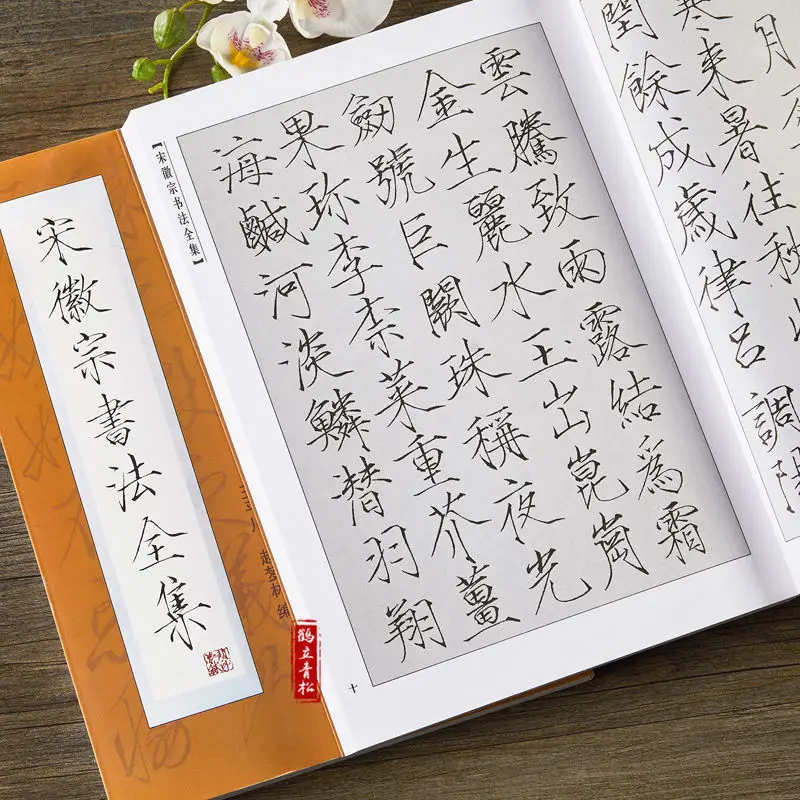 月
寒來暑往秋
閏餘成歲律呂調陽
雲騰致雨露結爲霜
金生麗水玉出崑崗
劒號巨闕珠稱夜光
果珍李柰菜重芥薑
海鹹河淡鱗潛羽翔
【宋徽宗书法全集】
十
宋徽宗書法全集
王平川 赵梦林 编
鹤立青松